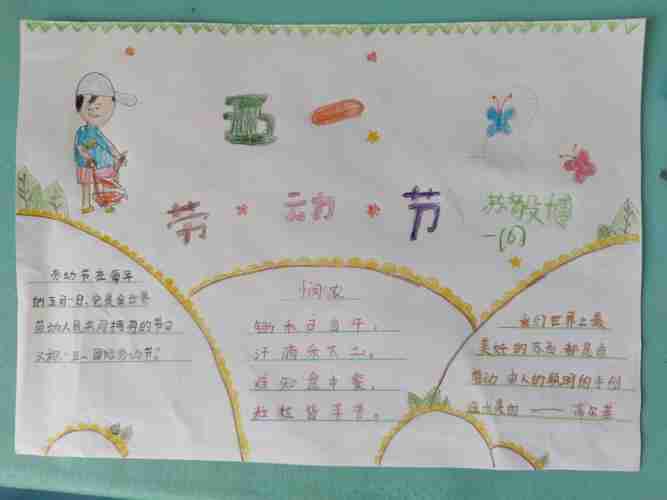 五一
劳动节
敬博
一(6)
劳动节在每年
的五月一日,它是全世界
劳动人民共同拥有的节日
又称"五一国际劳动节"。
悯农
锄禾日当午,
汗滴禾下土。
谁知盘中餐,
粒粒皆辛苦。
我们世界上最
美好的东西都是由
劳动、由人的聪明的手创
造出来的——高尔基